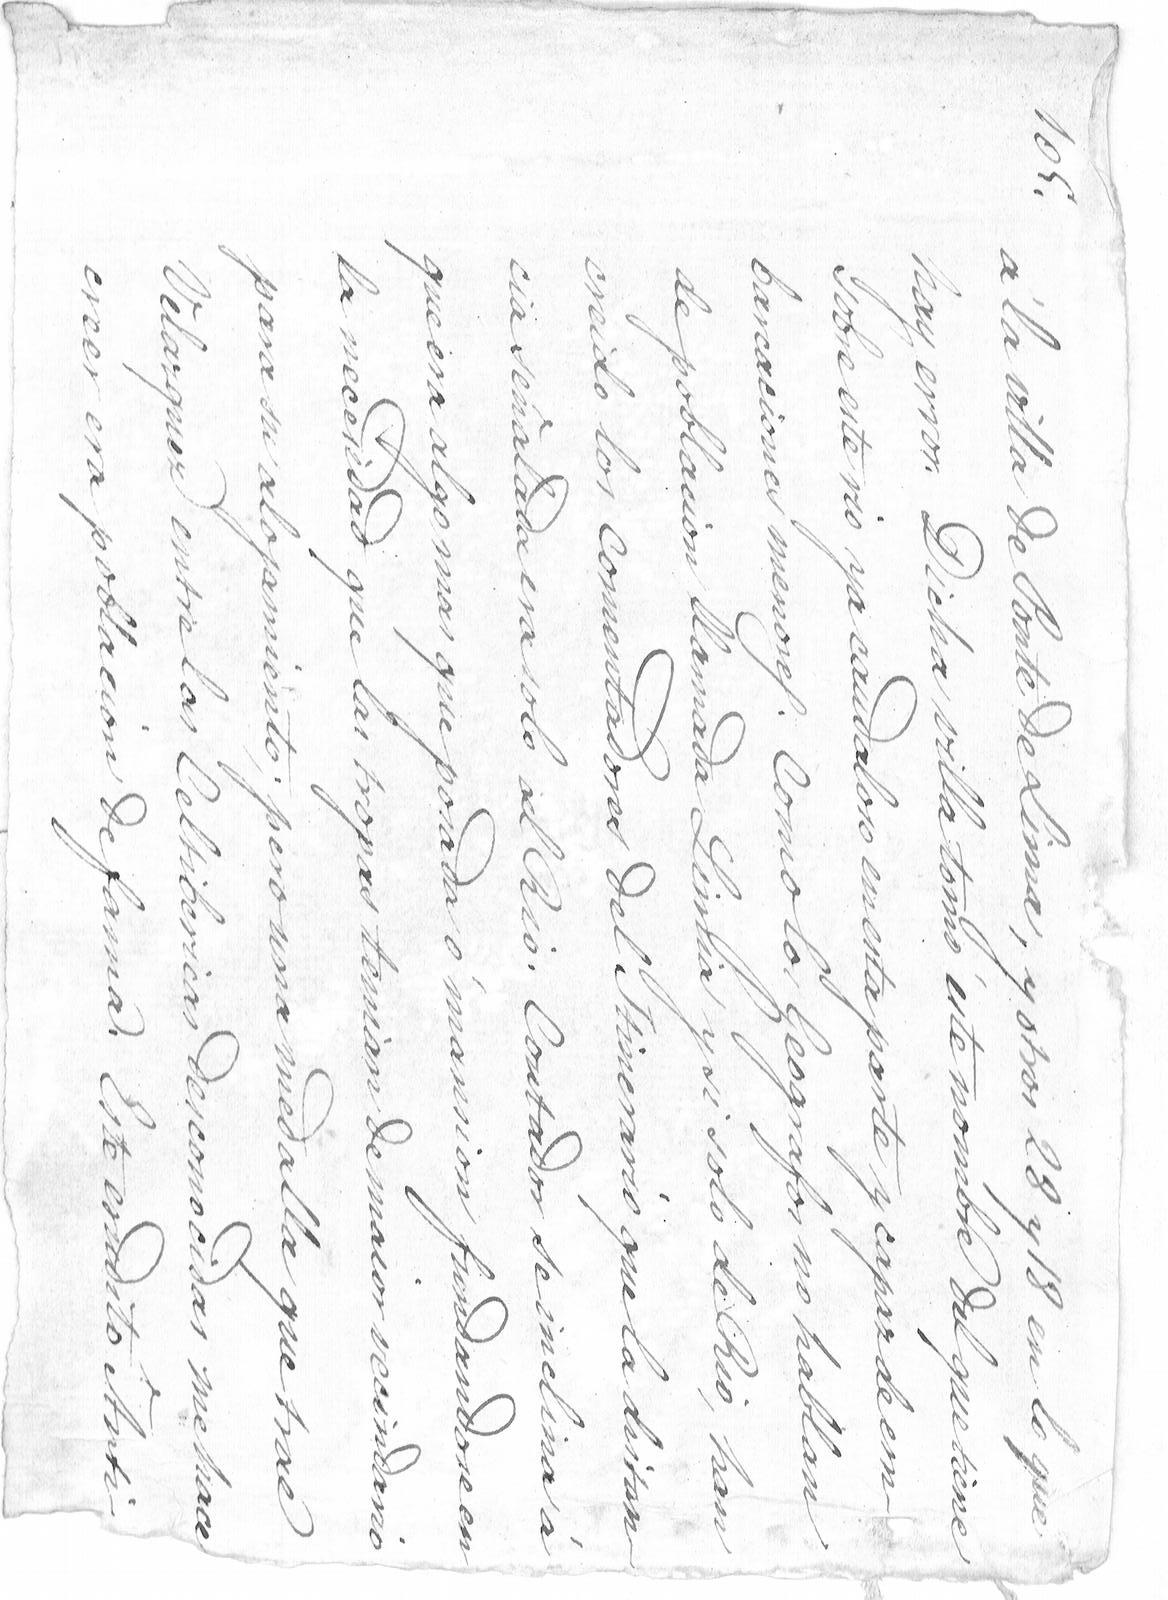 105.
a' la villa de Ponte de Lima, y otros 28 y 18 en lo que
hay error. Dicha villa tomó este nombre del que tiene
sobre este rio ya caudaloso en esta parte, y capaz de em-
barcaciones menores. Como los Geografos no hablan
de poblacion llamada Limia, y si solo de Rio, han
creido los Comentadores del Itinerario que la distan-
cia señalada era solo al Rio. Contador se inclina á
que era algo mas que posada ó mansion, fundandose en
la necesidad que las tropas tenian de maior vecindario
para su alojamiento; pero una medalla que trae
Velazquez entre las Celtibericas desconocidas me hace
creer era poblacion de fama. Este erudito Anti-